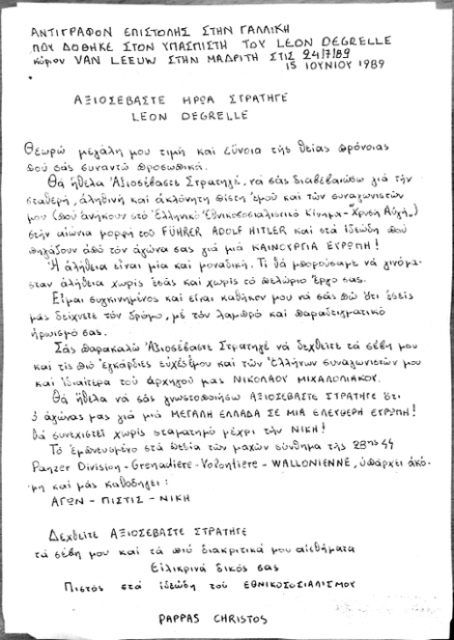 ΑΝΤΙΓΡΑΦΟΝ ΕΠΙΣΤΟΛΗΣ ΣΤΗΝ ΓΑΛΛΙΚΗ
ΠΟΥ ΔΟΘΗΚΕ ΣΤΟΝ ΥΠΑΣΠΙΣΤΗ ΤΟΥ LEON DEGRELLE
κύριον VAN LEEUW ΣΤΗΝ ΜΑΔΡΙΤΗ ΣΤΙΣ 24/7/89
15 ΙΟΥΝΙΟΥ 1989
ΑΞΙΟΣΕΒΑΣΤΕ ΗΡΩΑ ΣΤΡΑΤΗΓΕ
LEON DEGRELLE
Θεωρώ μεγάλη μου τιμή και εύνοια τής θείας πρόνοιας
πού σάς συναντώ προσωπικά.
Θά ήθελα Ἀξιοσέβαστε Στρατηγέ, νά σάς διαβεβαιώσω γιά τήν
σταθερή, αληθινή και ακλόνητη πίστη εμού και τών συναγωνιστών
μου (πού ανήκουν στό Ἑλληνικό Ἐθνικοσοσιαλιστικό Κίνημα - Χρυσή Αυγή)
στήν αιώνια μορφή του FÜHRER ADOLF HITLER και στά ιδεώδη πού
πηγάζουν από τόν αγώνα σας γιά μιά ΚΑΙΝΟΥΡΓΙΑ ΕΥΡΩΠΗ!
Ἡ αλήθεια είναι μία και μοναδική. Τι θά μπορούσαμε νά γινόμα-
σταν αλήθεια χωρίς εσάς και χωρίς τό πελώριο έργο σας.
Είμαι συγκινημένος και είναι καθήκον μου νά σάς πώ ότι εσείς
μάς δείχνετε τόν δρόμο, με τόν λαμπρό και παραδειγματικό
ηρωισμό σας.
Σάς παρακαλώ Ἀξιοσέβαστε Στρατηγέ νά δεχθείτε τά σέβη μου
και τίς πιό εγκάρδιες ευχές εμού και τών Ἑλλήνων συναγωνιστών μου
και ιδιαίτερα του αρχηγού μας ΝΙΚΟΛΑΟΥ ΜΙΧΑΛΟΛΙΑΚΟΥ.
Θά ήθελα νά σάς γνωστοποιήσω ΑΞΙΟΣΕΒΑΣΤΕ ΣΤΡΑΤΗΓΕ ότι
ὁ αγώνας μας γιά μιά ΜΕΓΑΛΗ ΕΛΛΑΔΑ ΣΕ ΜΙΑ ΕΛΕΥΘΕΡΗ ΕΥΡΩΠΗ!
θά συνεχιστεί χωρίς σταματημό μέχρι τήν ΝΙΚΗ!
Τό εμπνευσμένο στά πεδία τών μαχών σύνθημα τής 28ης SS
Panzer Division - Grenadière - Volontière - WALLONIENNE, υπάρχει ακό-
μη και μάς καθοδηγεί:
ΑΓΩΝ - ΠΙΣΤΙΣ - ΝΙΚΗ
Δεχθείτε ΑΞΙΟΣΕΒΑΣΤΕ ΣΤΡΑΤΗΓΕ
τά σέβη μου και τά πιό διακριτικά μου αισθήματα
Ειλικρινά δικός σας
Πιστός στά ιδεώδη του ΕΘΝΙΚΟΣΟΣΙΑΛΙΣΜΟΥ
PAPPAS CHRISTOS